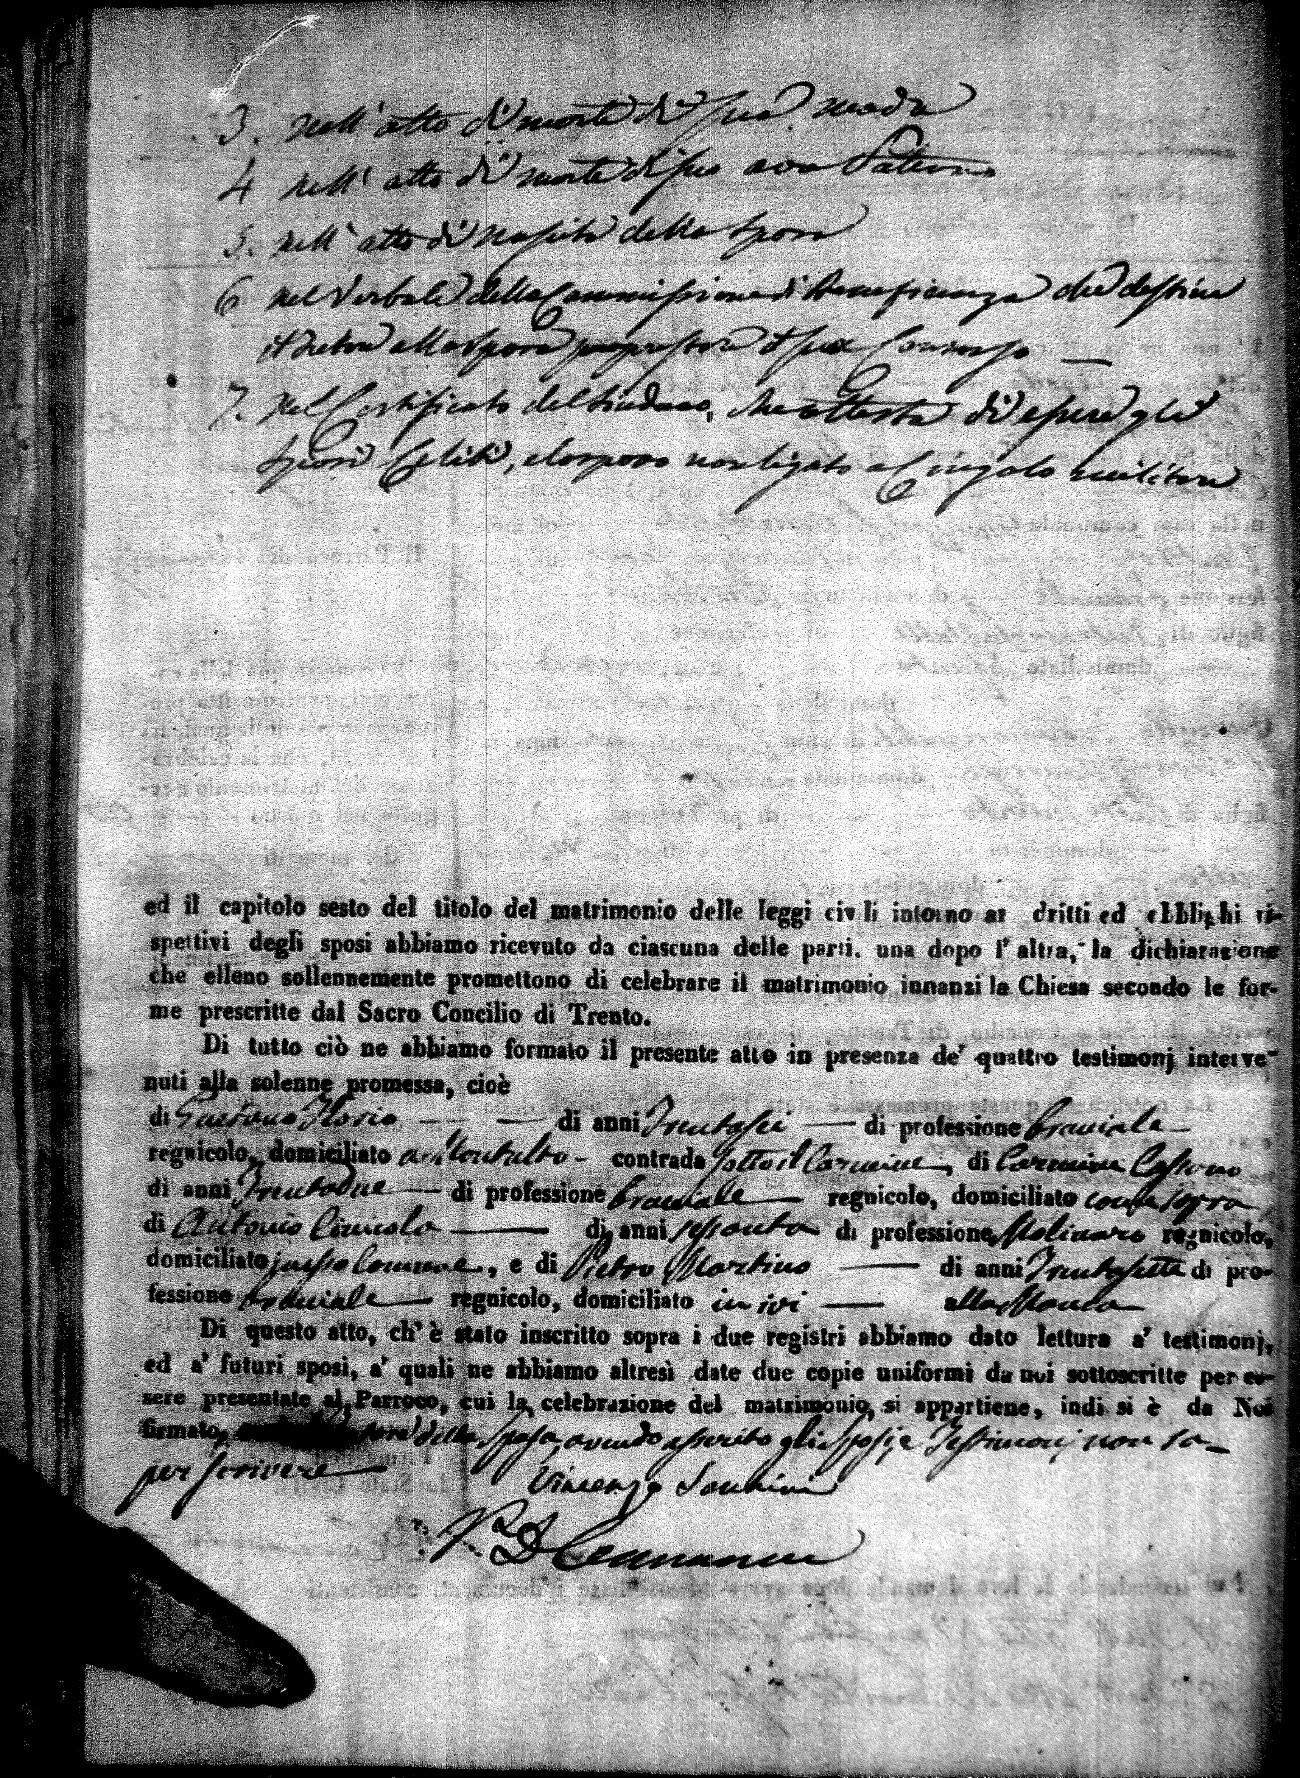 3. nell' atto di morte di sua madre
4 nell' atto di morte di suo avo Paterno
5. nell' atto di nascita della sposa
6 nel Verbale della Commissione di Beneficenza che destina
alla sposa
7. Nel Certificato del Sindaco, che attesta di essere gli
sposi Celibi, e lo sposo non ligato a Cingolo militare
ed il capitolo sesto del titolo del matrimonio delle leggi civili intorno ai dritti ed obblighi ri-
spettivi degli sposi abbiamo ricevuto da ciascuna delle parti. una dopo l' altra, la dichiarazione
che elleno sollennemente promettono di celebrare il matrimonio innanzi la Chiesa secondo le for-
me prescritte dal Sacro Concilio di Trento.
Di tutto ciò ne abbiamo formato il presente atto in presenza de' quattro testimonj interve-
nuti alla solenne promessa, cioè
di Gaetano Florio di anni Trentasei di professione bracciale
regnicolo, domiciliato in Montalto contrada sotto il Carmine, di Carmine
di anni Trentadue di professione bracciale regnicolo, domiciliato come sopra
di Antonio di anni sessanta di professione Molinaro regnicolo,
domiciliato in esso Comune, e di Pietro Martino di anni Trentasette di pro-
fessione bracciale regnicolo, domiciliato in ivi alla
Di questo atto, ch' è stato inscritto sopra i due registri abbiamo dato lettura a' testimonj,
ed a' futuri sposi, a' quali ne abbiamo altresì date due copie uniformi da noi sottoscritte per es-
sere presentate al Parroco, cui la celebrazione del matrimonio si appartiene, indi si è da Noi
firmato, della Sposa, avendo asserito gli Sposi, e Testimonj non sa-
per scrivere
Vincenzo